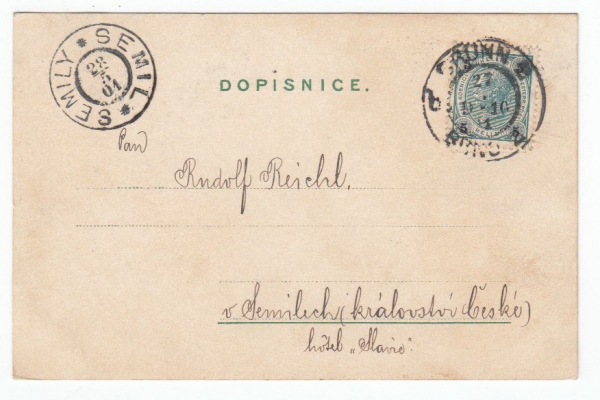 SEMIL * SEMILY *
23
5
01
DOPISNICE.
BRÜNN 2
22
10
BRNO
Pan
Rudolf Reichl,
v Semilech (království České)
hôtel „Slavie".